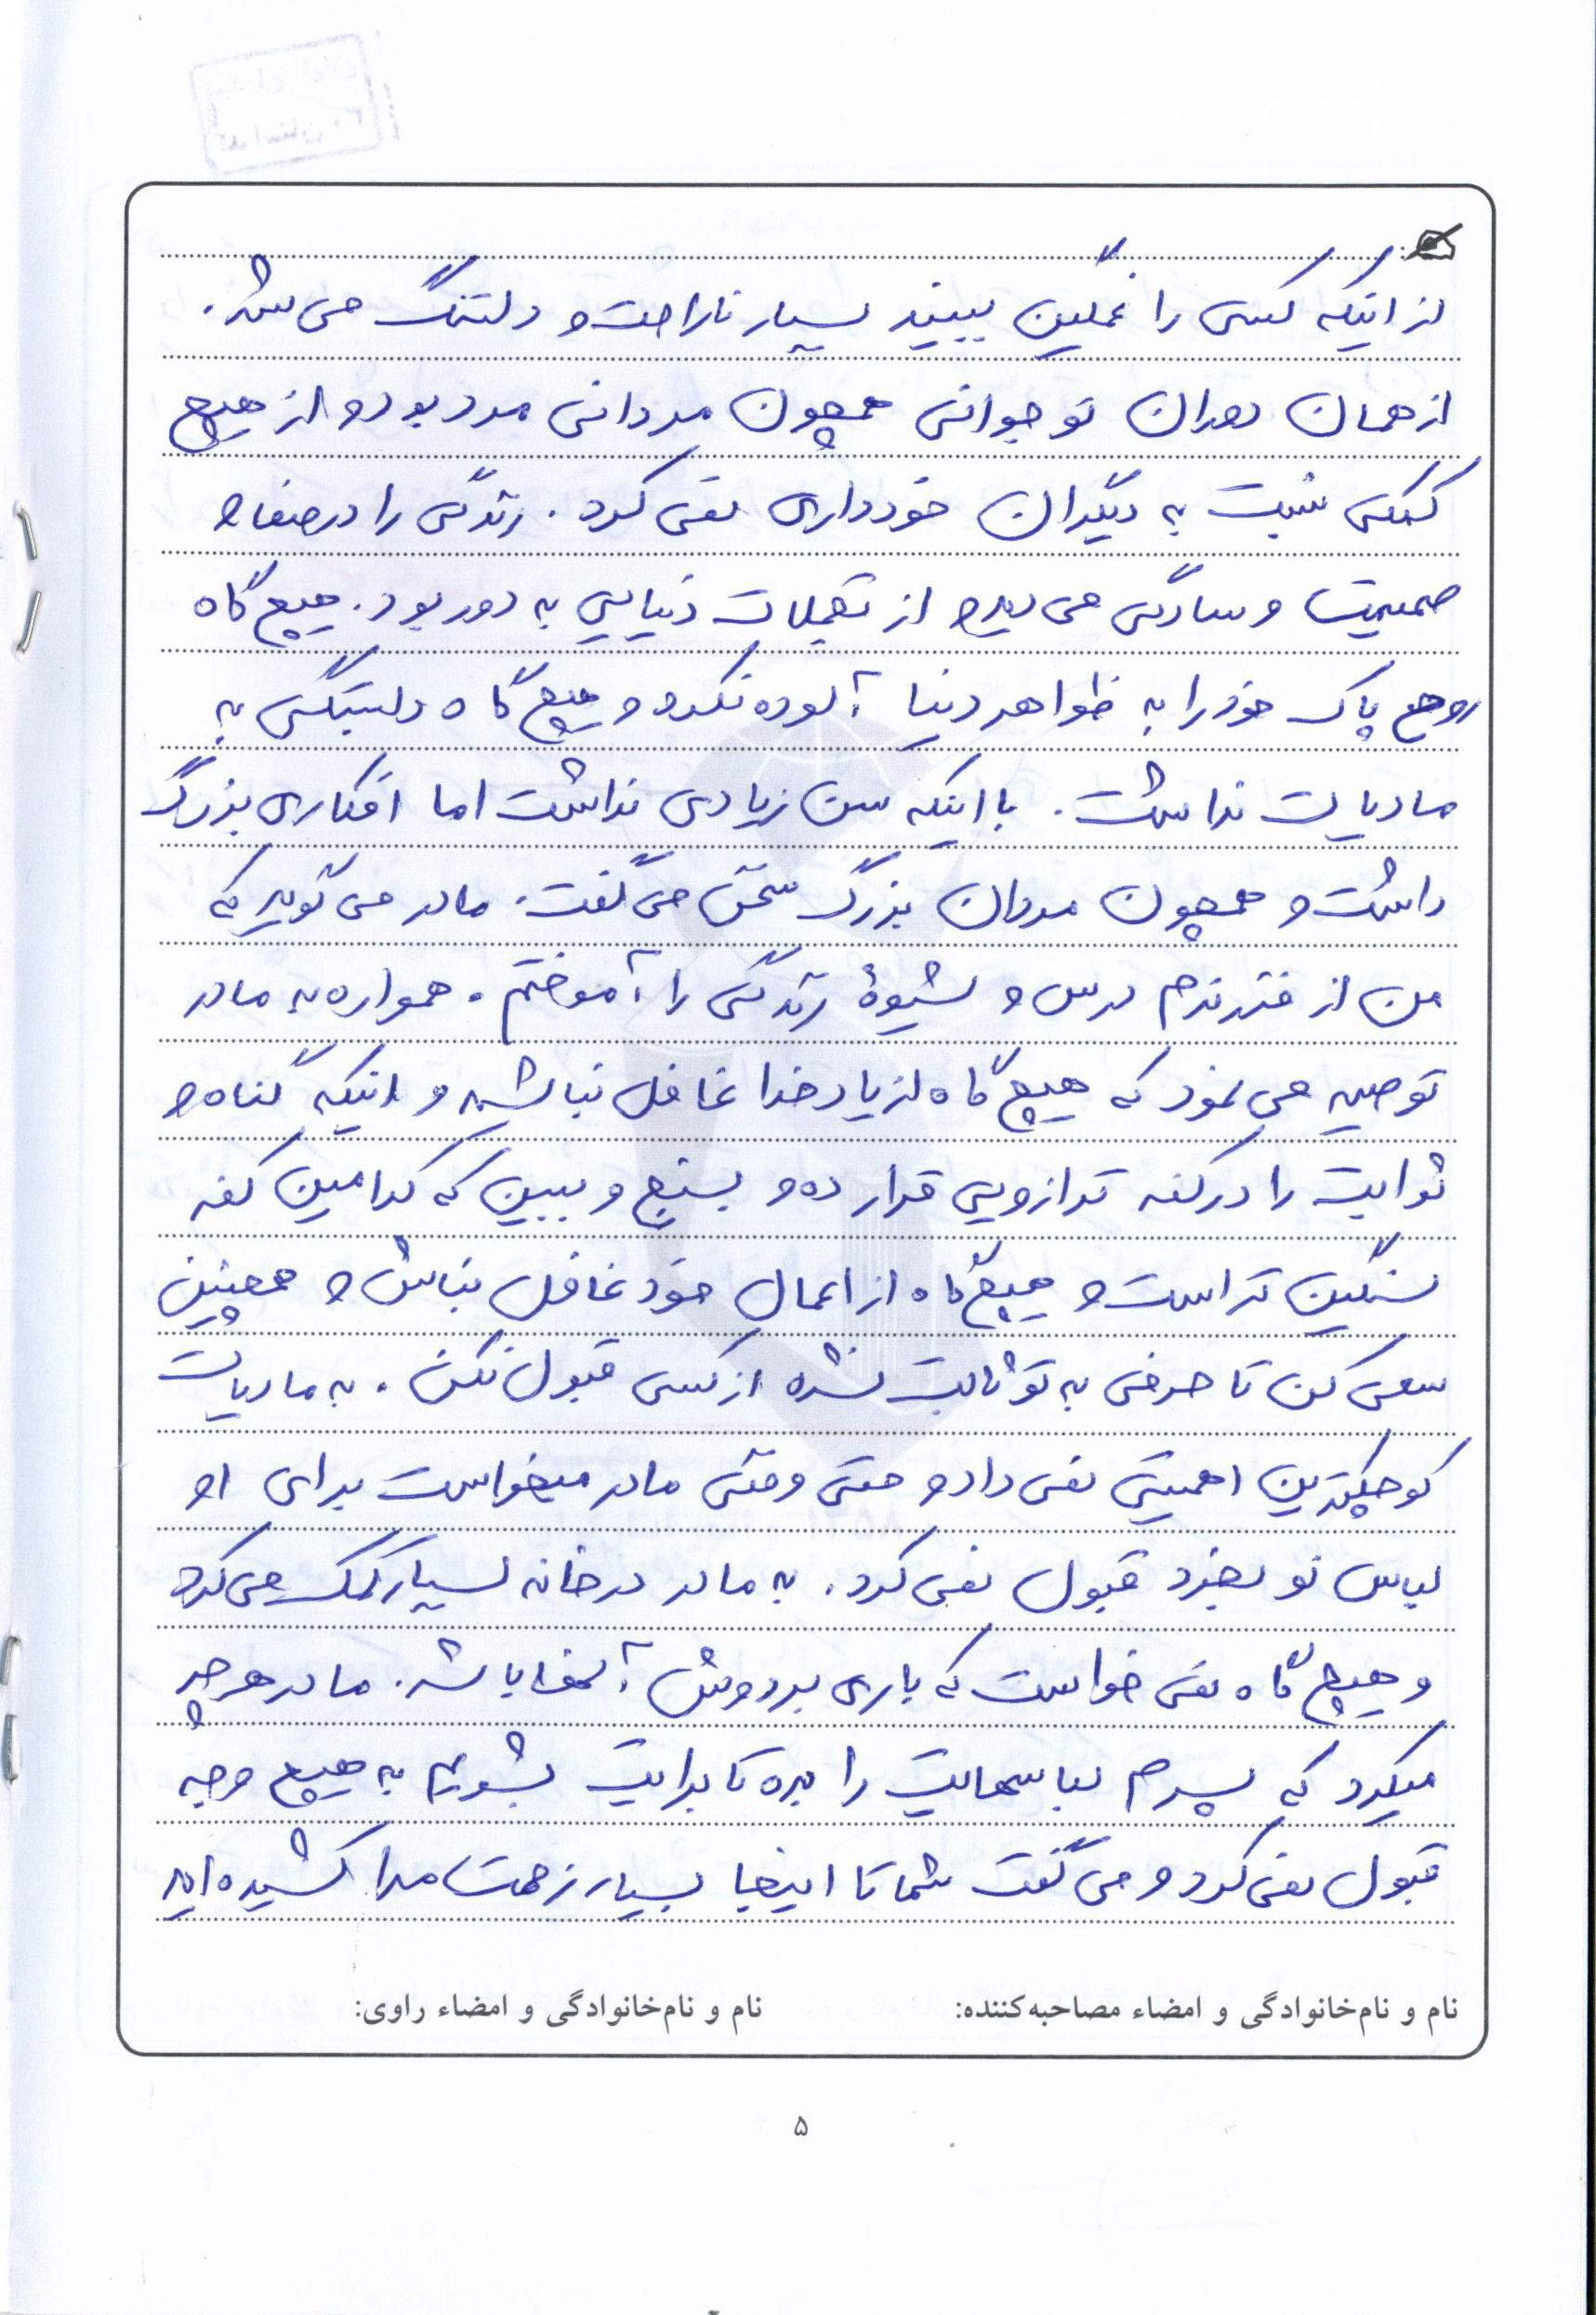 از اینکه کسی را غمگین ببیند بسیار ناراحت و دلتنگ می شد.
از همان دوران نوجوانی همچون مردانی مرد بود و از هیچ
کمکی نسبت به دیگران خودداری نمی کرد. زندگی را در صفا و
صمیمیت و سادگی می دید و از تجملات دنیایی به دور بود. هیچ گاه
روح پاک خود را به ظواهر دنیا آلوده نکرد و هیچ گاه دلبستگی به
مادیات نداشت. با اینکه سن زیادی نداشت اما افکاری بزرگ
داشت و همچون مردان بزرگ سخن می گفت. مادر می گوید که
من از فرزندم درس و شیوهٔ زندگی را آموختم. همواره به مادر
توصیه می نمود که هیچ گاه از یاد خدا غافل نباشد و اینکه گناه و
ثوابت را در کفه ترازویی قرار ده و بسنج و ببین که کدامین کفه
سنگین تر است و هیچ گاه از اعمال خود غافل نباش و همچنین
سعی کن تا حرفی به تو ثابت نشده از کسی قبول نکن. به مادیات
کوچکترین اهمیتی نمی داد و حتی وقتی مادر میخواست برای او
لباس نو بخرد قبول نمی کرد. به مادر در خانه بسیار کمک می کرد
و هیچ گاه نمی خواست که باری بر دوش آنها باشد. مادر هر چه
میکرد که پسرم لباسهایت را بده تا برایت بشویم به هیچ وجه
قبول نمی کرد و می گفت شما تا اینجا بسیار زحمت مرا کشیده اید
نام و نام‌خانوادگی و امضاء مصاحبه‌کننده: نام و نام‌خانوادگی و امضاء راوی:
۵